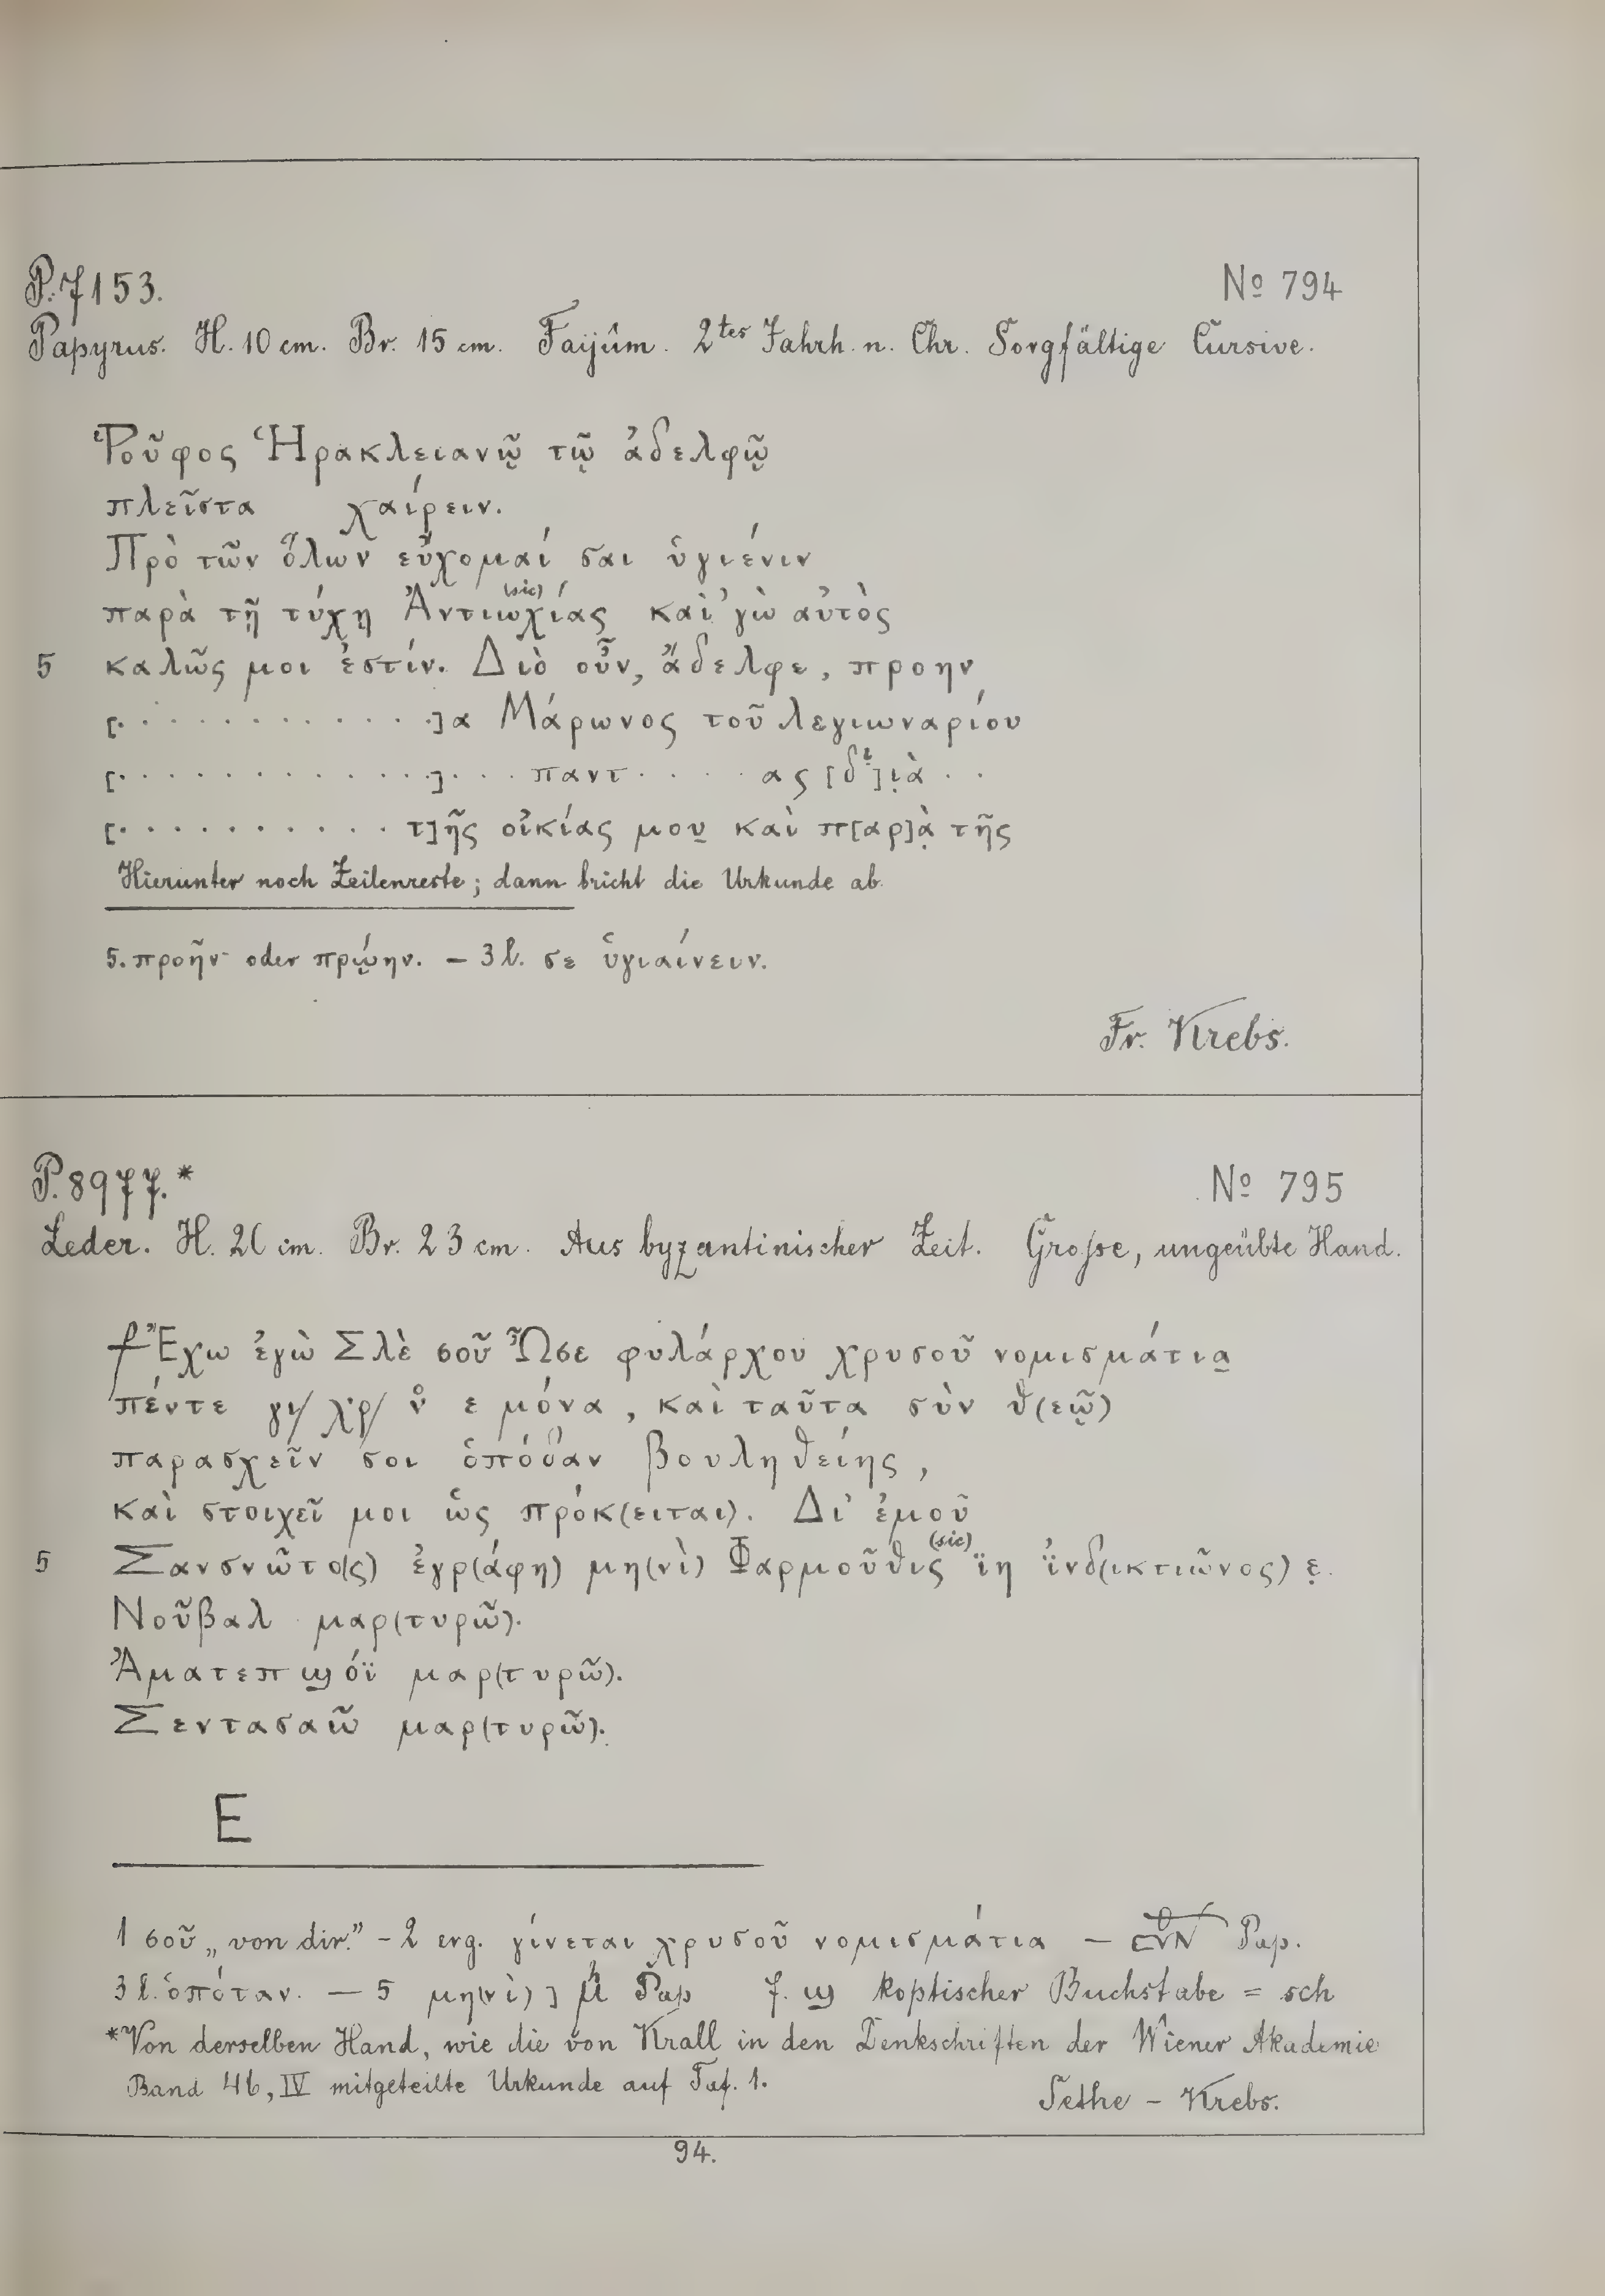 P. 7153.
No 794
Papyrus. H. 10 cm. Br. 15 cm. Faijûm. 2tes Jahrh. n. Chr. Sorgfältige Cursive.
Ῥοῦφος Ἡρακλειανῷ τῷ ἀδελφῷ
πλεῖστα χαίρειν.
Πρὸ τῶν ὅλων εὔχομαί σαι ὑγιένιν
παρὰ τῇ τύχῃ Ἀντιωχίας (sic) καὶ ’γὼ αὐτὸς
5 καλῶς μοι ἐστίν. Διὸ οὖν, ἄδελφε, προην
[. . . . . . . . . . . .]α Μάρωνος τοῦ λεγιωναρίου
[. . . . . . . . . . . .]. . . παντ . . . . ας [δ]ιὰ . .
[. . . . . . . . . . τ]ῆς οἰκίας μου καὶ π[αρ]ὰ τῆς
Hierunter noch Zeilenreste; dann bricht die Urkunde ab.
5. προῆν oder πρῴην. – 3 l. σε ὑγιαίνειν.
Fr. Krebs.
P. 8977.*
No 795
Leder. H. 26 cm. Br. 23 cm. Aus byzantinischer Zeit. Grosse, ungeübte Hand.
Ἔχω ἐγὼ Σλὲ σοῦ Ὦσε φυλάρχου χρυσοῦ νομισμάτια
πέντε γι/ χρ/ ν̊ ε μόνα, καὶ ταῦτα σὺν θ(εῷ)
παρασχεῖν σοι ὁπόθαν βουληθείης,
καὶ στοιχεῖ μοι ὡς πρόκ(ειται). Δι’ ἐμοῦ
5 Σανσνῶτο(ς) ἐγρ(άφη) μη(νὶ) Φαρμοῦθις (sic) ϊη ϊνδ(ικτιῶνος) ε.
Νοῦβαλ μαρ(τυρῶ).
Ἀματεπϣόϊ μαρ(τυρῶ).
Σεντασαῶ μαρ(τυρῶ).
E
1 σοῦ „von dir.” – 2 erg. γίνεται χρυσοῦ νομισμάτια – Pap.
3 l. ὁπόταν. – 5 μη(νὶ)] Pap 7. ϣ koptischer Buchstabe = sch
*Von derselben Hand, wie die von Krall in den Denkschriften der Wiener Akademie
Band 46, IV mitgeteilte Urkunde auf Taf. 1.
Sethe – Krebs.
94.